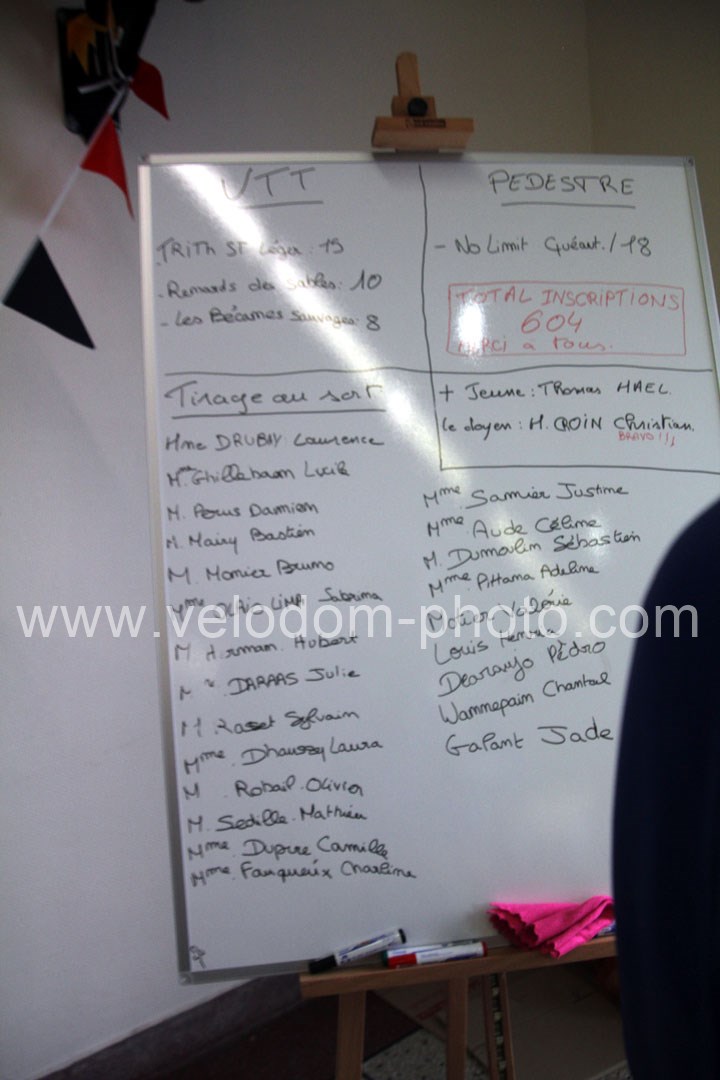 UTT
TRITH ST Léger : 15
- Renards des Sables : 10
- Les Bécanes Sauvages : 8
PEDESTRE
- No Limit Guéant / 18
TOTAL INSCRIPTIONS
604
MERCI à tous.
Tirage au sort
+ Jeune : Thomas HAEL
Le doyen : M. CROIN Christian.
BRAVO !!!
Mme DRUBAY Laurence
Mme Ghillebaon Lucile
M. Porus Damien
M. Mairy Bastien
M. Monier Bruno
Mme Sabrina
M Herman Hubert
DARRAS Julie
M. Rasset Sylvain
Mme Dhaussy Laura
M Robail Olivier
M. Sedille Mathieu
Mme Dupire Camille
Mme Fauqueux Charline
Mme Samier Justine
Mme Aude Céline
M. Dumoulin Sébastien
Mme Pittana Adeline
Valérie
Louis
Dearaujo Pédro
Wannepain Chantal
Galant Jade
www.velodom-photo.com